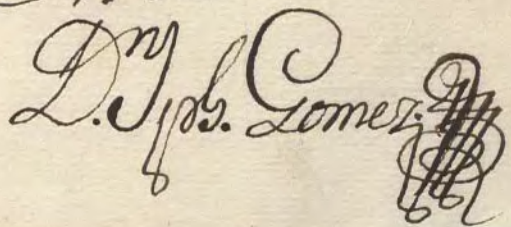 D.ⁿ Jph. Gomez.